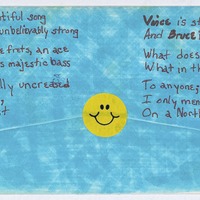 tiful song
unbelievably strong
e frets, an ace
s majestic bass
lly uncreased
t
Vince is st
And Bruce i
What does
What in th
To anyone,
I only mem
On a North